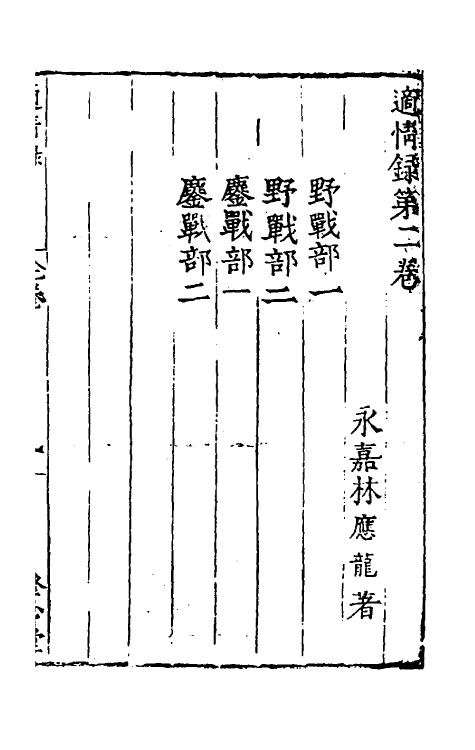 適情録第二卷
永嘉林應龍著
野戰部一
野戰部二
鏖戰部一
鏖戰部二